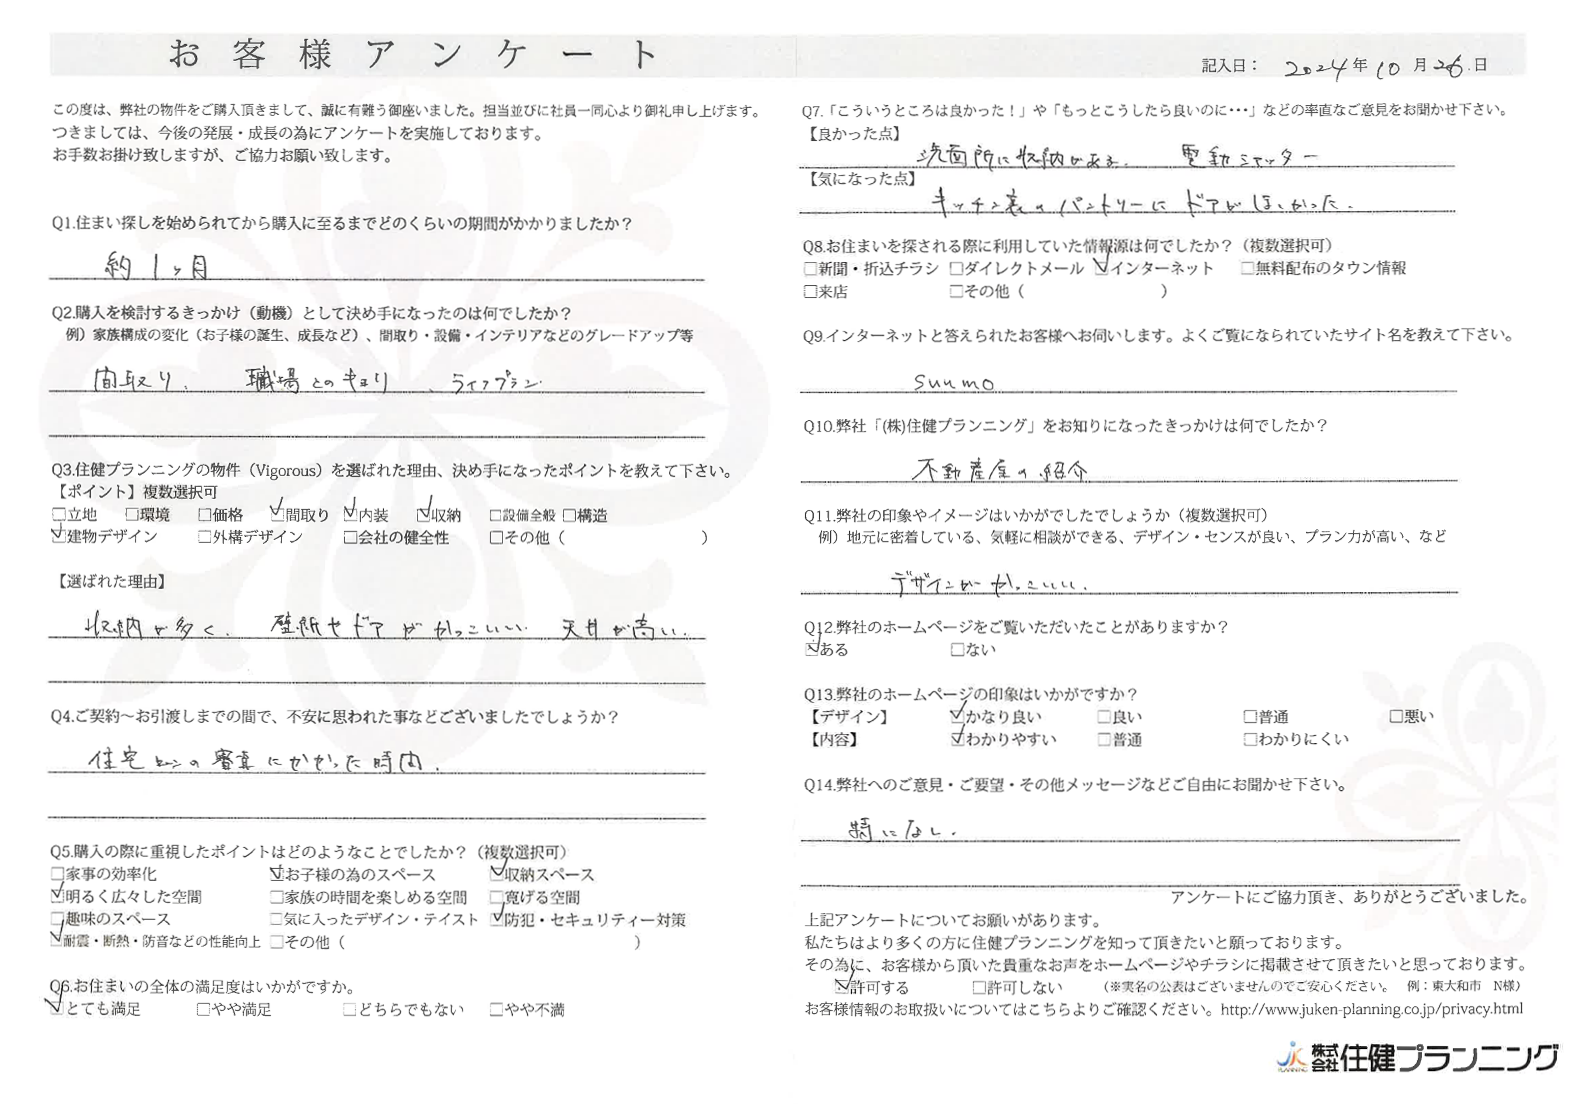 お客様アンケート
記入日： 2024年 10月 26日
この度は、弊社の物件をご購入頂きまして、誠に有難う御座いました。担当並びに社員一同心より御礼申し上げます。
つきましては、今後の発展・成長の為にアンケートを実施しております。
お手数お掛け致しますが、ご協力お願い致します。
Q1.住まい探しを始められてから購入に至るまでどのくらいの期間がかかりましたか？
約1ヶ月
Q2.購入を検討するきっかけ（動機）として決め手になったのは何でしたか？
例）家族構成の変化（お子様の誕生、成長など）、間取り・設備・インテリアなどのグレードアップ等
間取り、 職場とのキョリ、ライフプラン
Q3.住健プランニングの物件（Vigorous）を選ばれた理由、決め手になったポイントを教えて下さい。
【ポイント】複数選択可
□立地 □環境 □価格 ☑間取り ☑内装 ☑収納 □設備全般 □構造
☑建物デザイン □外構デザイン □会社の健全性 □その他（ ）
【選ばれた理由】
収納が多く、 壁紙やドアがかっこいい 天井が高い、
Q4.ご契約～お引渡しまでの間で、不安に思われた事などございましたでしょうか？
住宅ローンの審査にかかった時間、
Q5.購入の際に重視したポイントはどのようなことでしたか？（複数選択可）
□家事の効率化 ☑お子様の為のスペース ☑収納スペース
☑明るく広々した空間 □家族の時間を楽しめる空間 □寛げる空間
□趣味のスペース □気に入ったデザイン・テイスト ☑防犯・セキュリティー対策
☑耐震・断熱・防音などの性能向上 □その他（ ）
Q6.お住まいの全体の満足度はいかがですか。
☑とても満足 □やや満足 □どちらでもない □やや不満
Q7.「こういうところは良かった！」や「もっとこうしたら良いのに・・・」などの率直なご意見をお聞かせ下さい。
【良かった点】
洗面所に収納がある、 電動シャッター
【気になった点】
キッチン裏のパントリーにドアがほしかった、
Q8.お住まいを探される際に利用していた情報源は何でしたか？（複数選択可）
□新聞・折込チラシ □ダイレクトメール ☑インターネット □無料配布のタウン情報
□来店 □その他（ ）
Q9.インターネットと答えられたお客様へお伺いします。よくご覧になられていたサイト名を教えて下さい。
suumo
Q10.弊社「(株)住健プランニング」をお知りになったきっかけは何でしたか？
不動産屋の紹介
Q11.弊社の印象やイメージはいかがでしたでしょうか（複数選択可）
例）地元に密着している、気軽に相談ができる、デザイン・センスが良い、プラン力が高い、など
デザインがかっこいい、
Q12.弊社のホームページをご覧いただいたことがありますか？
☑ある □ない
Q13.弊社のホームページの印象はいかがですか？
【デザイン】 ☑かなり良い □良い □普通 □悪い
【内容】 ☑わかりやすい □普通 □わかりにくい
Q14.弊社へのご意見・ご要望・その他メッセージなどご自由にお聞かせ下さい。
特になし、
アンケートにご協力頂き、ありがとうございました。
上記アンケートについてお願いがあります。
私たちはより多くの方に住健プランニングを知って頂きたいと願っております。
その為に、お客様から頂いた貴重なお声をホームページやチラシに掲載させて頂きたいと思っております。
☑許可する □許可しない （※実名の公表はございませんのでご安心ください。 例：東大和市 N様）
お客様情報のお取扱いについてはこちらよりご確認ください。http://www.juken-planning.co.jp/privacy.html
JK PLANNING 株式会社住健プランニング